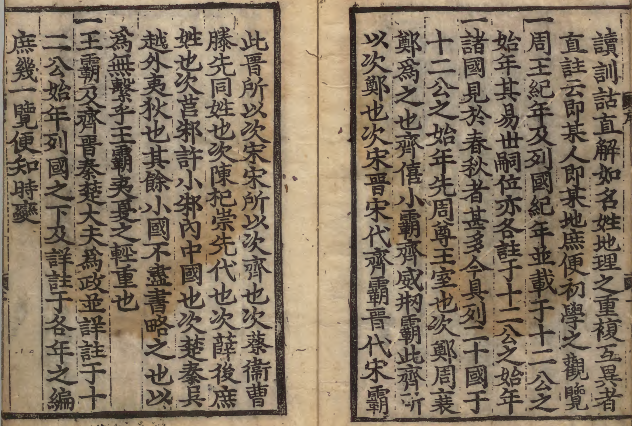 讀訓詁直解如名姓地理之重複互異者
直註云即某人即某地庶便初學之觀覽
一周王紀年及列國紀年並載于十二公之
始年其易世嗣位亦各註于十二公之始年
一諸國見於春秋者甚多今具列二十國于
十二公之始年先周尊王室也次鄭周衰
鄭爲之也齊僖小霸齊威刱霸此齊所
以次鄭也次宋晉宋代齊霸晉代宋霸
此晉所以次宋宋所以次齊也次蔡衞曹
滕先同姓也次陳杞崇先代也次薛後庶
姓也次莒邾許小邾內中國也次楚秦吳
越外夷狄也其餘小國不盡書略之也以
爲無繫乎王霸夷夏之輕重也
一王霸及齊晉秦楚大夫爲政並詳註于十
二公始年列國之下及詳註于各年之編
庶幾一覽便知時變